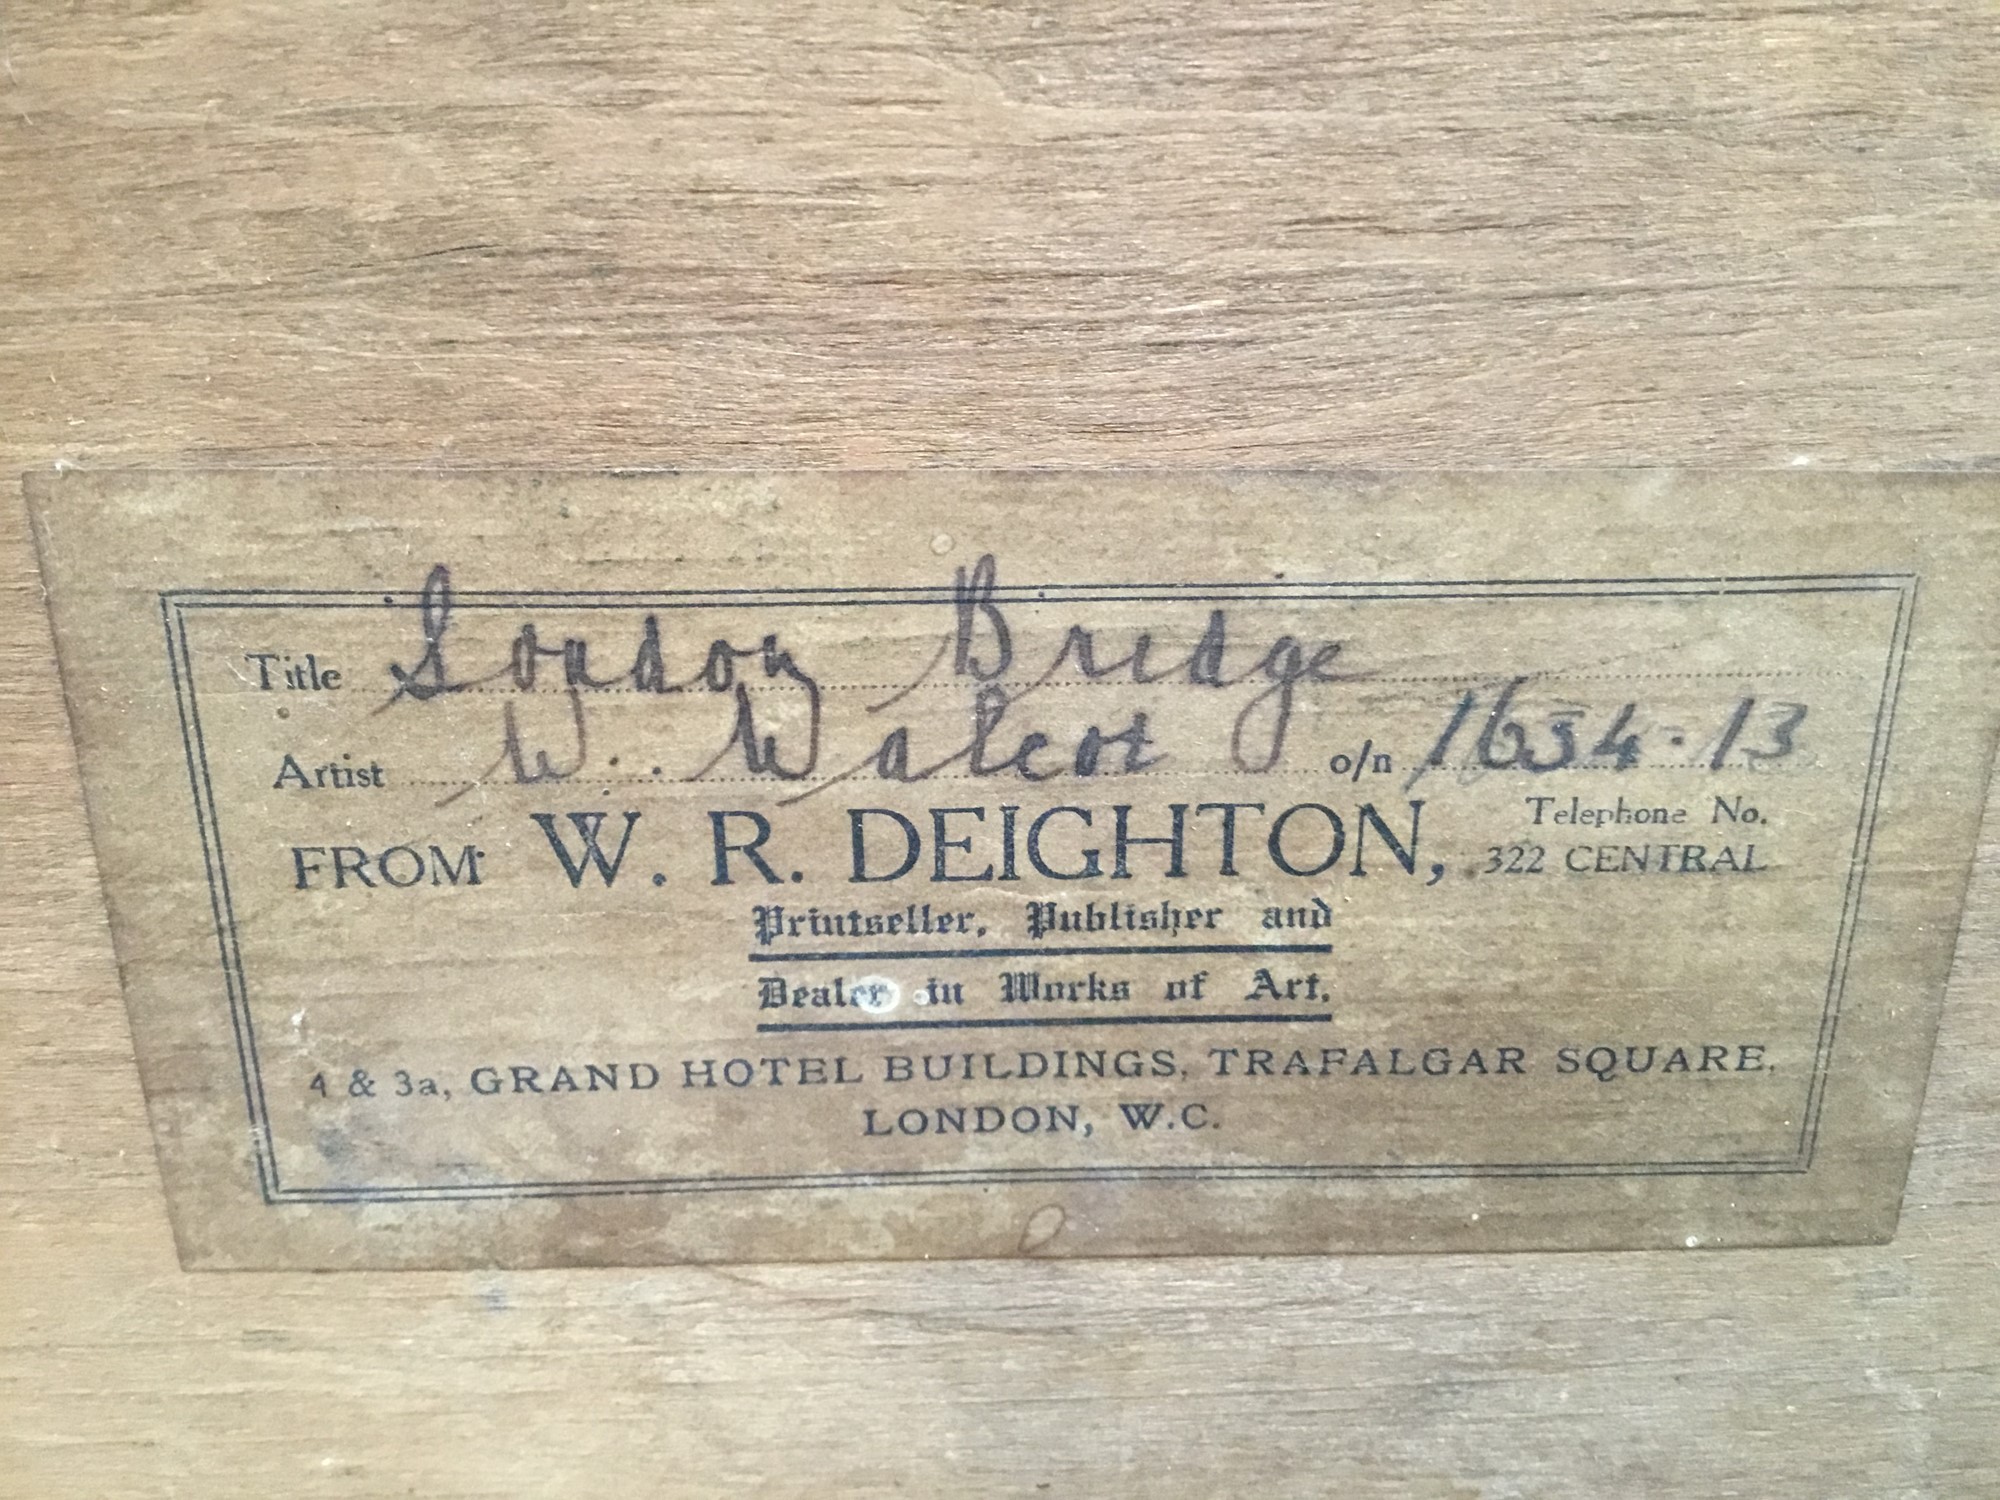 Title London Bridge
Artist W. Walcot o/n 1634-13
FROM W. R. DEIGHTON, Telephone No.
322 CENTRAL
Printseller, Publisher and
Dealer in Works of Art.
4 & 3a, GRAND HOTEL BUILDINGS, TRAFALGAR SQUARE,
LONDON, W.C.